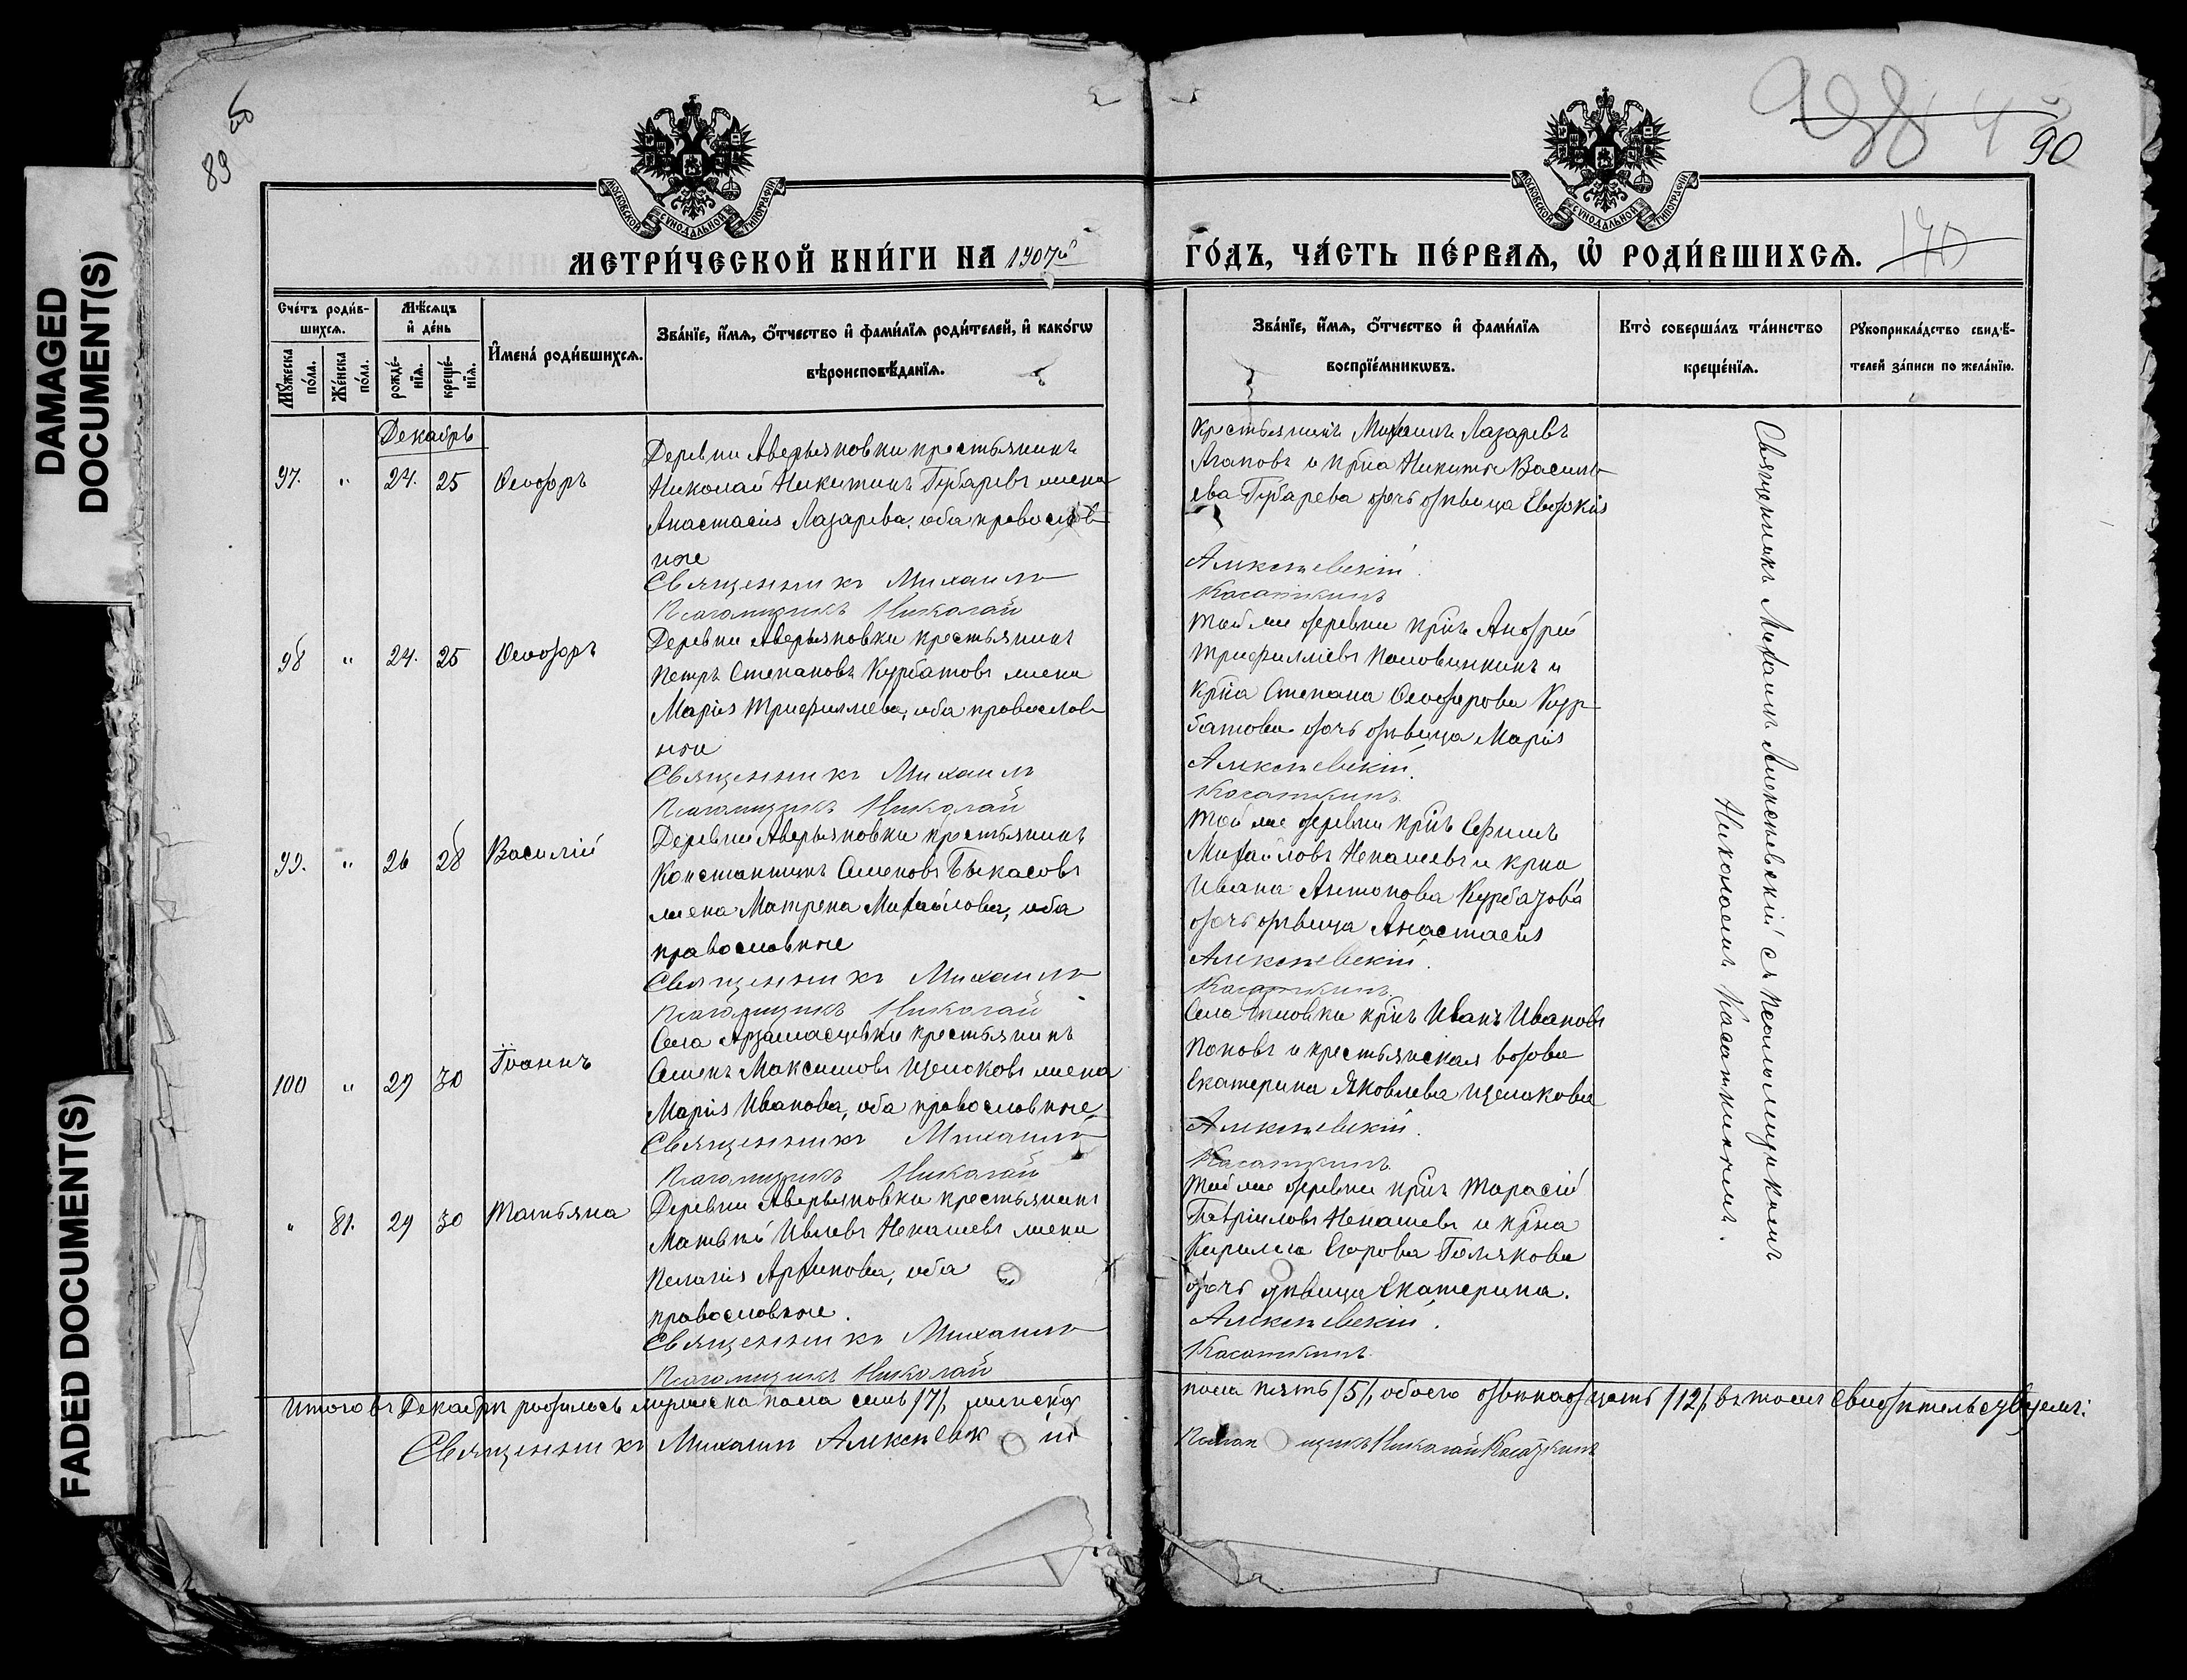 DAMAGED
DOCUMENT(S)
FADED DOCUMENT(S)
89
90
170
МОСКОВСКОЙ СѴНОДАЛЬНОЙ ТИПОГРАФІИ
МОСКОВСКОЙ СѴНОДАЛЬНОЙ ТИПОГРАФІИ
МЕТРИ́ЧЕСКОЙ КНИ́ГИ НА 1907й
ГО́ДЪ, ЧА́СТЬ ПЕ́РВАѦ, Ѡ҆ РОДИ́ВШИХСѦ.
Сче́тъ роди́в-
шихсѧ.
Мѣ́сѧцъ
и҆ де́нь
Мꙋ́жеска
по́ла.
Же́нска
по́ла.
рожде́-
нїѧ.
креще́-
нїѧ.
И҆мена̀ роди́вшихсѧ.
Зва́нїе, и҆́мѧ, ѻ҆́тчество и҆ фами́лїѧ роди́телей, и҆ како́гѡ
вѣроисповѣ́данїѧ.
Зва́нїе, и҆́мѧ, ѻ҆́тчество и҆ фами́лїѧ
воспрїе́мникѡвъ.
Кто̀ соверша́лъ та́инство
креще́нїѧ.
Рꙋкоприкла́дство свидѣ́-
телей за́писи по жела́нїю.
Декабрь
97. " 24. 25 Ѳеодоръ
Деревни Аверьяновки крестьянинъ
Николай Никитинъ Губаревъ жена
Анастасія Лазарева, оба православ-
ные
Священникъ Михаилъ
Псаломщикъ Николай
Крестьянинъ Михаилъ Лазаревъ
Агаповъ и крна Никиты Василь-
ева Губарева дочь дѣвица Евдокія
Алексѣевскій.
Касаткинъ
98 " 24. 25 Ѳеодоръ
Деревни Аверьяновки крестьянинъ
Петръ Степановъ Курбатовъ жена
Марія Трифиллієва, оба православ
ные
Священникъ Михаилъ
Псаломщикъ Николай
Той же деревни крнъ Андрей
Трифилліевъ Половинкинъ и
крна Степана Ѳеодорова Кур-
батова дочь дѣвица Марія
Алексѣевскій.
Касаткинъ.
99. " 26 28 Василій
Деревни Аверьяновки крестьянинъ
Константинъ Семеновъ Быкасовъ
жена Матрена Михайлова, оба
православные
Священникъ Михаилъ
Псаломщикъ Николай
Той же деревни крнъ Ефимъ
Михайловъ Ненашевъ и крна
Ивана Антонова
дочь дѣвица Анастасія
Алексѣевскій.
Касаткинъ.
100 " 29 30 Іоаннъ
Села Арзамасцевки крестьянинъ
Семенъ Максимовъ Щелоковъ жена
Марія Иванова, оба православные
Священникъ Михаилъ
Псаломщикъ Николай
Села крнъ Иванъ Ивановъ
Поповъ и крестьянская вдова
Екатерина Яковлева Щелокова
Алексѣевскій.
Касаткинъ.
" 81. 29 30 Татьяна
Деревни Аверьяновки крестьянинъ
Матвѣй Ивлевъ Ненашевъ жена
Пелагія Архипова, оба
православные.
Священникъ Михаилъ
Псаломщикъ Николай
Той же деревни крнъ Тарасій
Гавріиловъ Ненашевъ и крна
Кирилла Егорова Полякова
дочь дѣвица Екатерина.
Алексѣевскій.
Касаткинъ
Священникъ Михаилъ Алексѣевскій съ Псаломщикомъ
Николаемъ Касаткинымъ.
Итого въ Декабрѣ родилось мужеска пола семь /7/, женска
пола пять /5/, обоего двѣнадцать /12/, въ томъ свидѣтельствуемъ:
Священникъ Михаилъ Алексѣевскій
Псаломщикъ Николай Касаткинъ